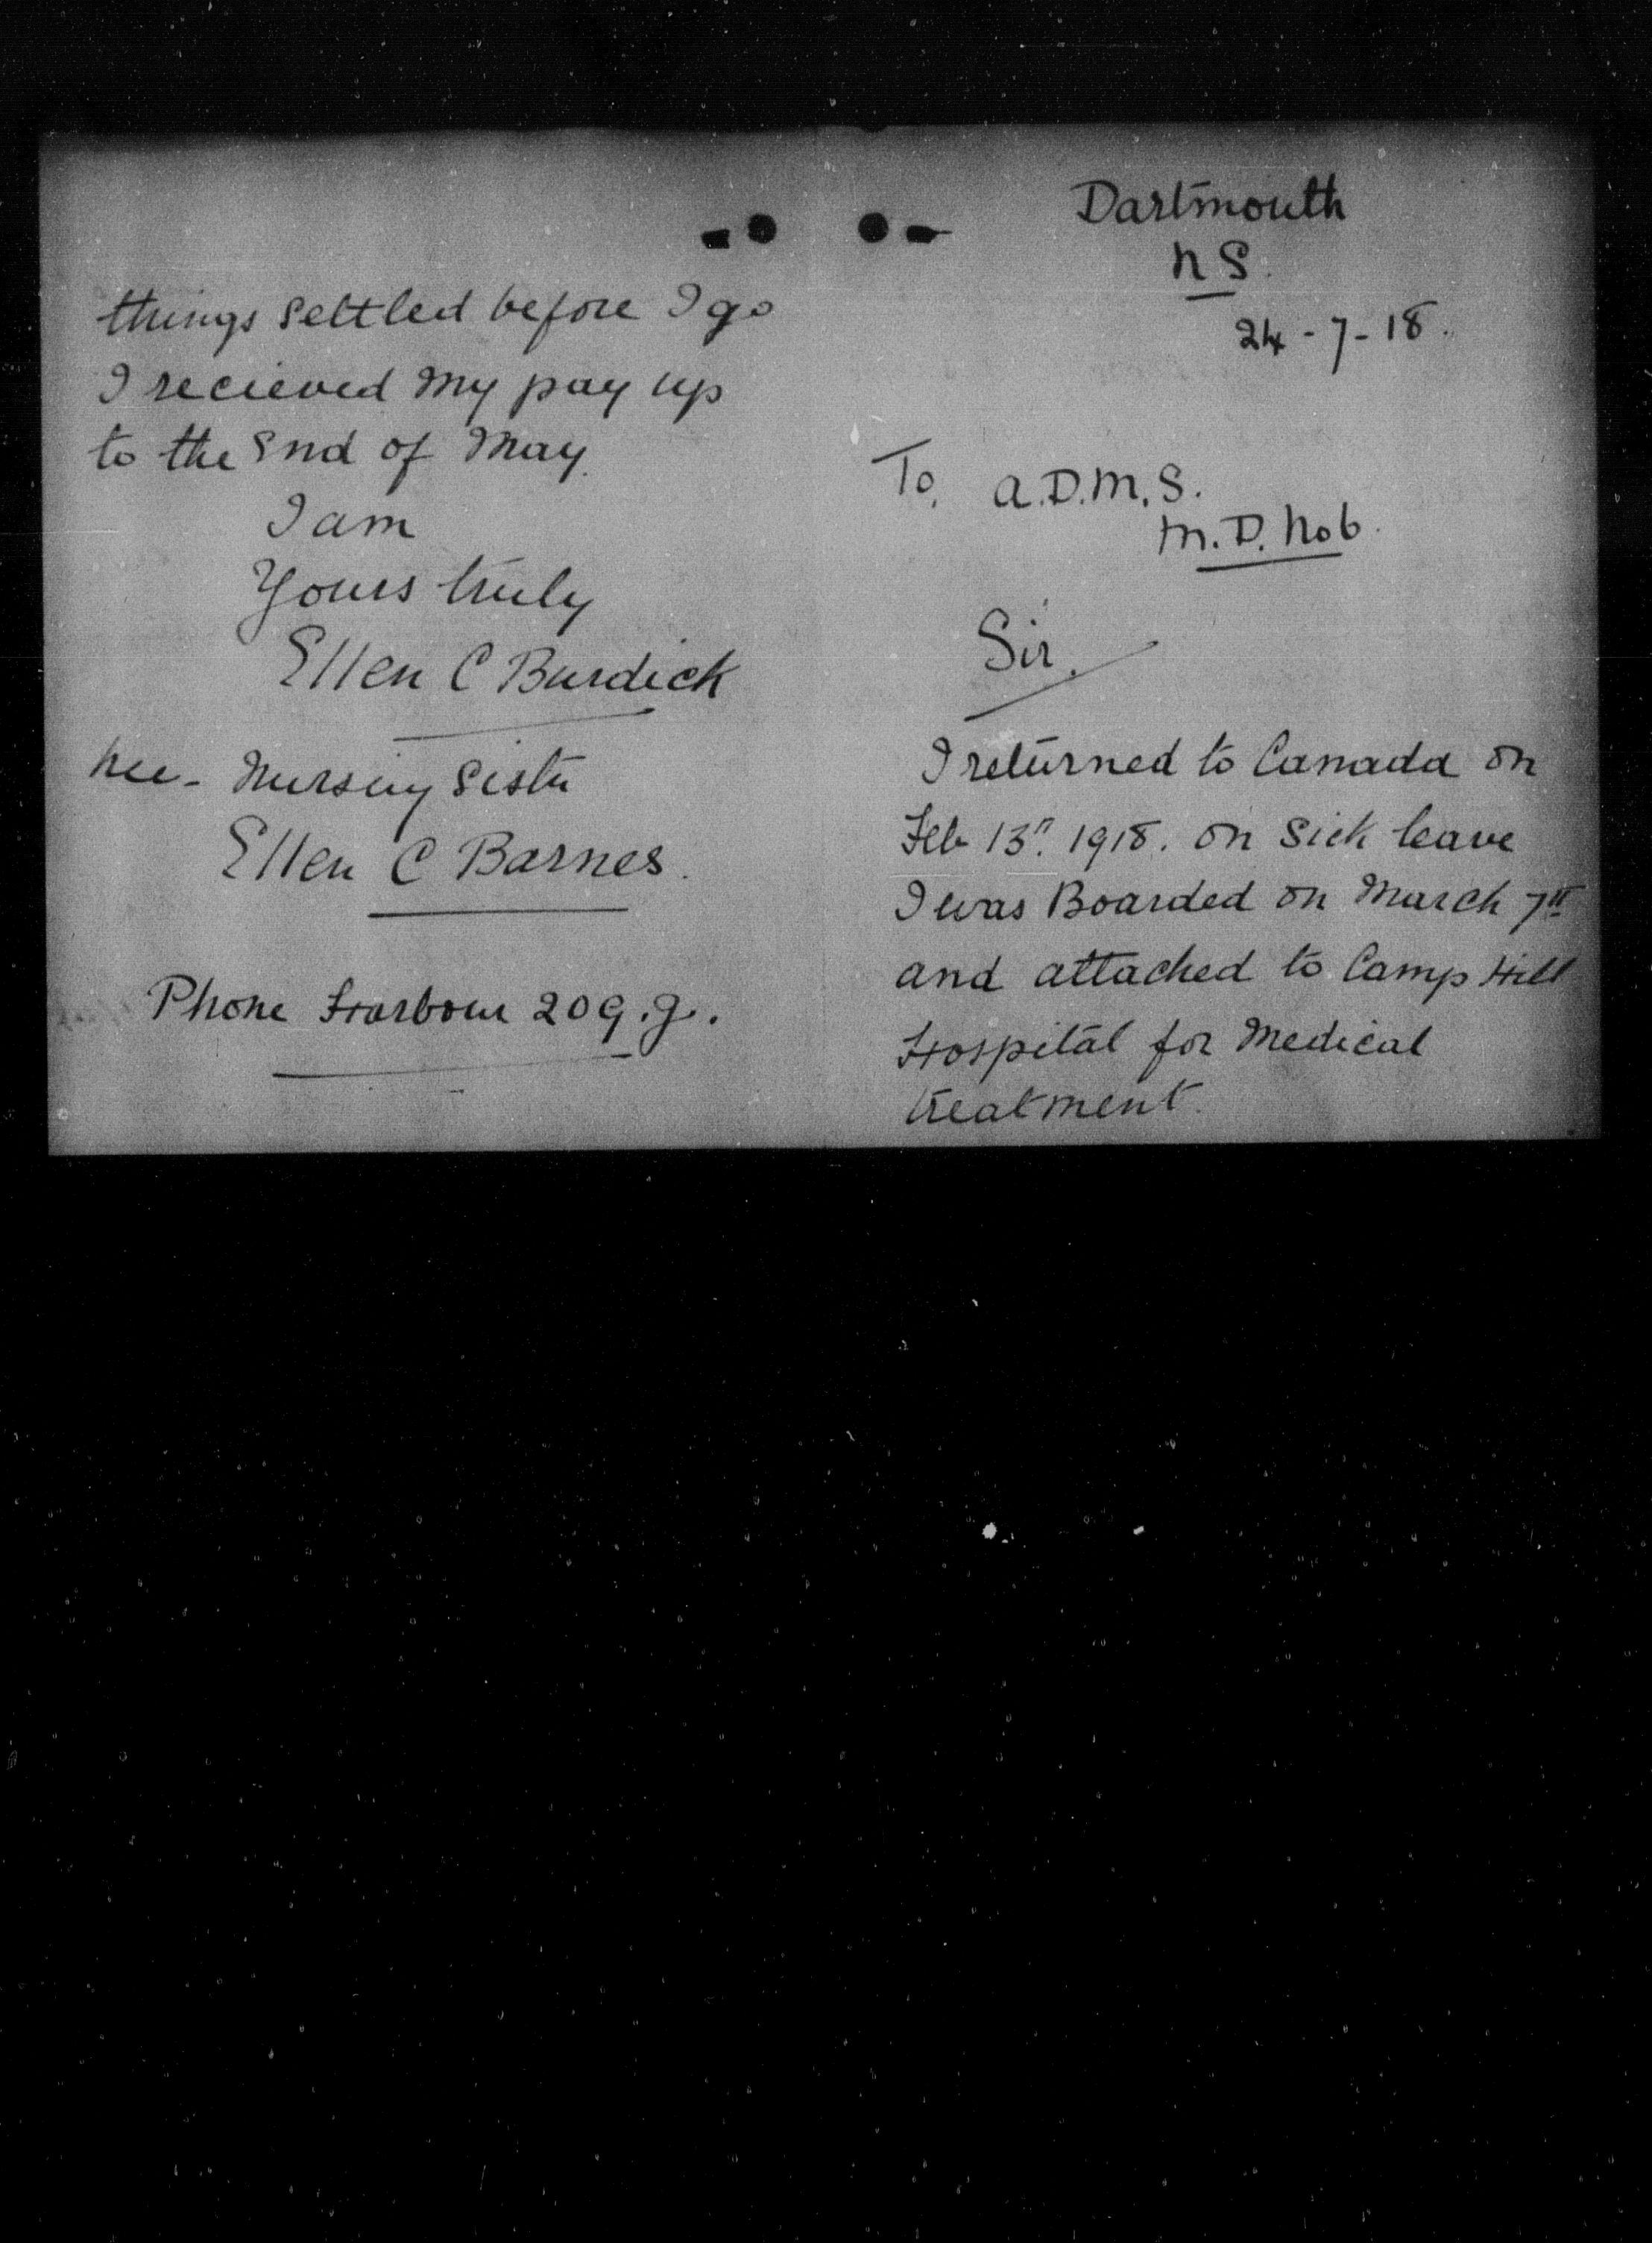 things settled before I go
I recieved my pay up
to the End of May.
I am
Yours truly
Ellen C Burdick
nee - Nursing Sister
Ellen C Barnes.
Phone Harbour 209.J.
Dartmouth
N S.
24 - 7 - 18.
To. A.D.M.S.
M.D. No 6.
Sir.
I returned to Canada on
Feb 13" 1918. on sick leave
I was Boarded on March 7"
and attached to Camp Hill
Hospital for Medical
treatment.